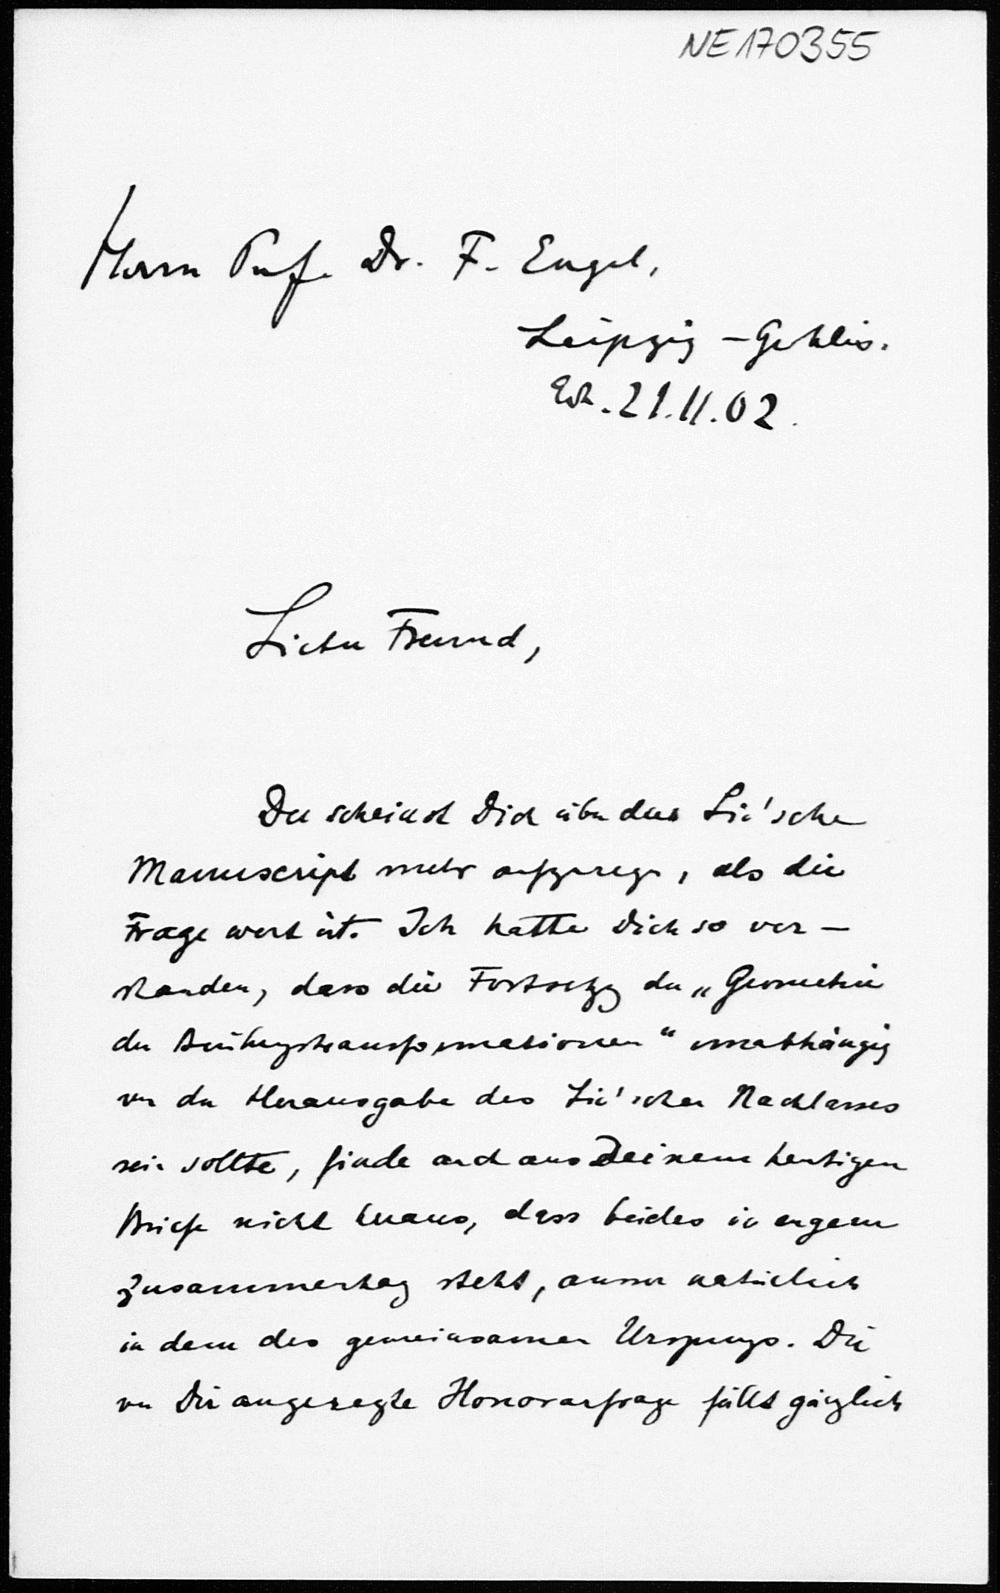 NE170355
Herrn Prof. Dr. F. Engel,
Leipzig - Gohlis.
21.11.02.
Lieber Freund,
Du scheinst Dich über das Lie'sche
Manuscript mehr aufzuregen, als die
Frage wert ist. Ich hatte Dich so ver-
standen, dass die Fortsetzg der „Geometrie
der Berührungstransformationen" unabhängig
von der Herausgabe des Lie'schen Nachlasses
sein sollte, finde auch aus Deinem heutigen
Briefe nicht heraus, dass beides in engem
Zusammenhang steht, ausser natürlich
in dem des gemeinsamen Ursprungs. Die
von Dir angeregte Honorarfrage fällt gänzlich